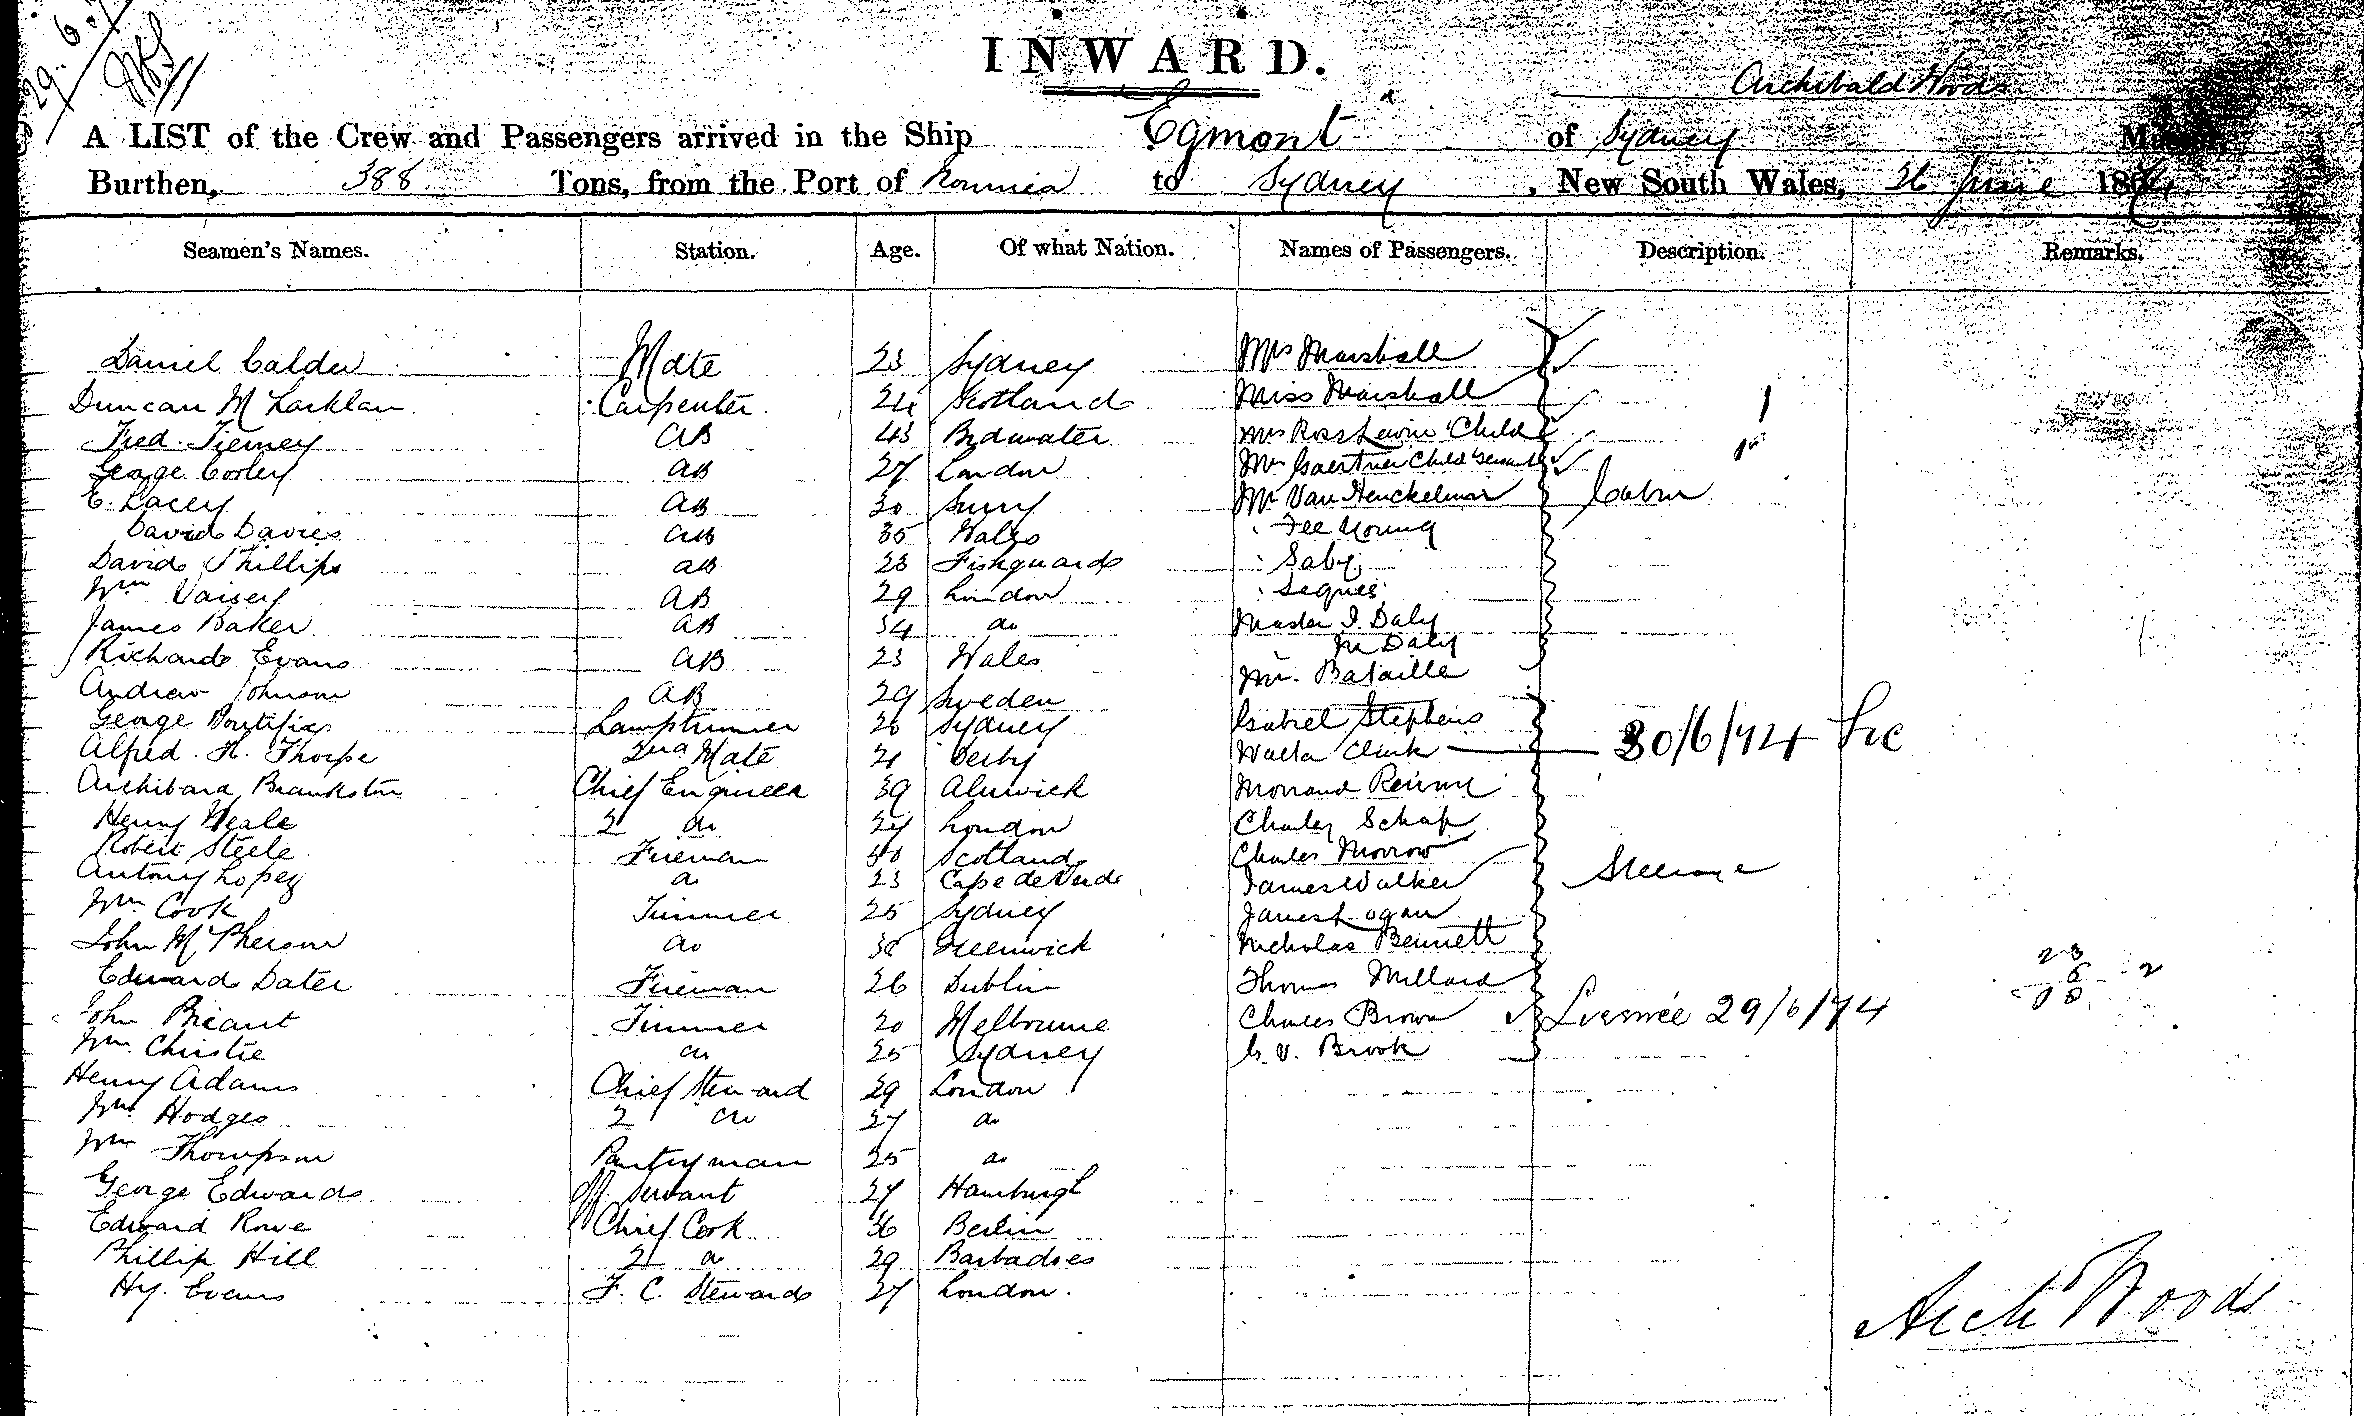 29.6.
INWARD.
Archibald Woods
A LIST of the Crew and Passengers arrived in the Ship Egmont of Sydney
Burthen, 388 Tons, from the Port of Noumea to Sydney, New South Wales, 26 June 18
Seamen's Names. Station. Age. Of what Nation. Names of Passengers. Description. Remarks.
Daniel Calder Mate 23 Sydney Mrs Marshall
Duncan McLachlan Carpenter 24 Scotland Miss Marshall
Fred. Tierney AB 43 Bridwater Mrs Child
George AB 27 London Mrs Gaertner Child
E. Lacey AB 30 Surry Mr Van Henckelum Cabin
David Davies AB 35 Wales " Fee Young
David Phillips AB 28 Fishguard " Saby
Wm Vaisey AB 29 London " Seques
James Baker AB 34 do Master I. Daly
M Daly
Richard Evans AB 23 Wales Mr. Bataille
Andrew Johnson AB 29 Sweden
George Pontifix Lamptrimmer 26 Sydney Gabriel Stephens
Alfred. H. Thorpe 2nd Mate 21 Derby Walter Clark 30/6/74
Archibard Brankston Chief Engineer 39 Alnwick
Henry Neale 2 do 27 London Charles Schaf
Robert Steele Fireman 40 Scotland Charles Morrow
Antony Lopez do 23 Cape de Verde James Walker Steerage
Wm Cook Trimmer 25 Sydney James Logan
John McPherson do 38 Greenwick Nicholas Bennett
Edward Dater Fireman 26 Dublin Thomas Millard
John Briant Trimmer 20 Melbourne Charles Brown 29/6/74
Wm. Christie do 25 Sydney G. V. Brook
Henry Adams Chief Steward 29 London
Wm Hodges 2 do 27 do
Wm Thompson Pantryman 25 do
George Edwards Off. Servant 27 Hamburgh
Edward Rowe Chief Cook 36 Berlin
Phillip Hill 2 do 29 Barbadoes
Hy. Evans F. C. Steward 27 London.
Arch Woods